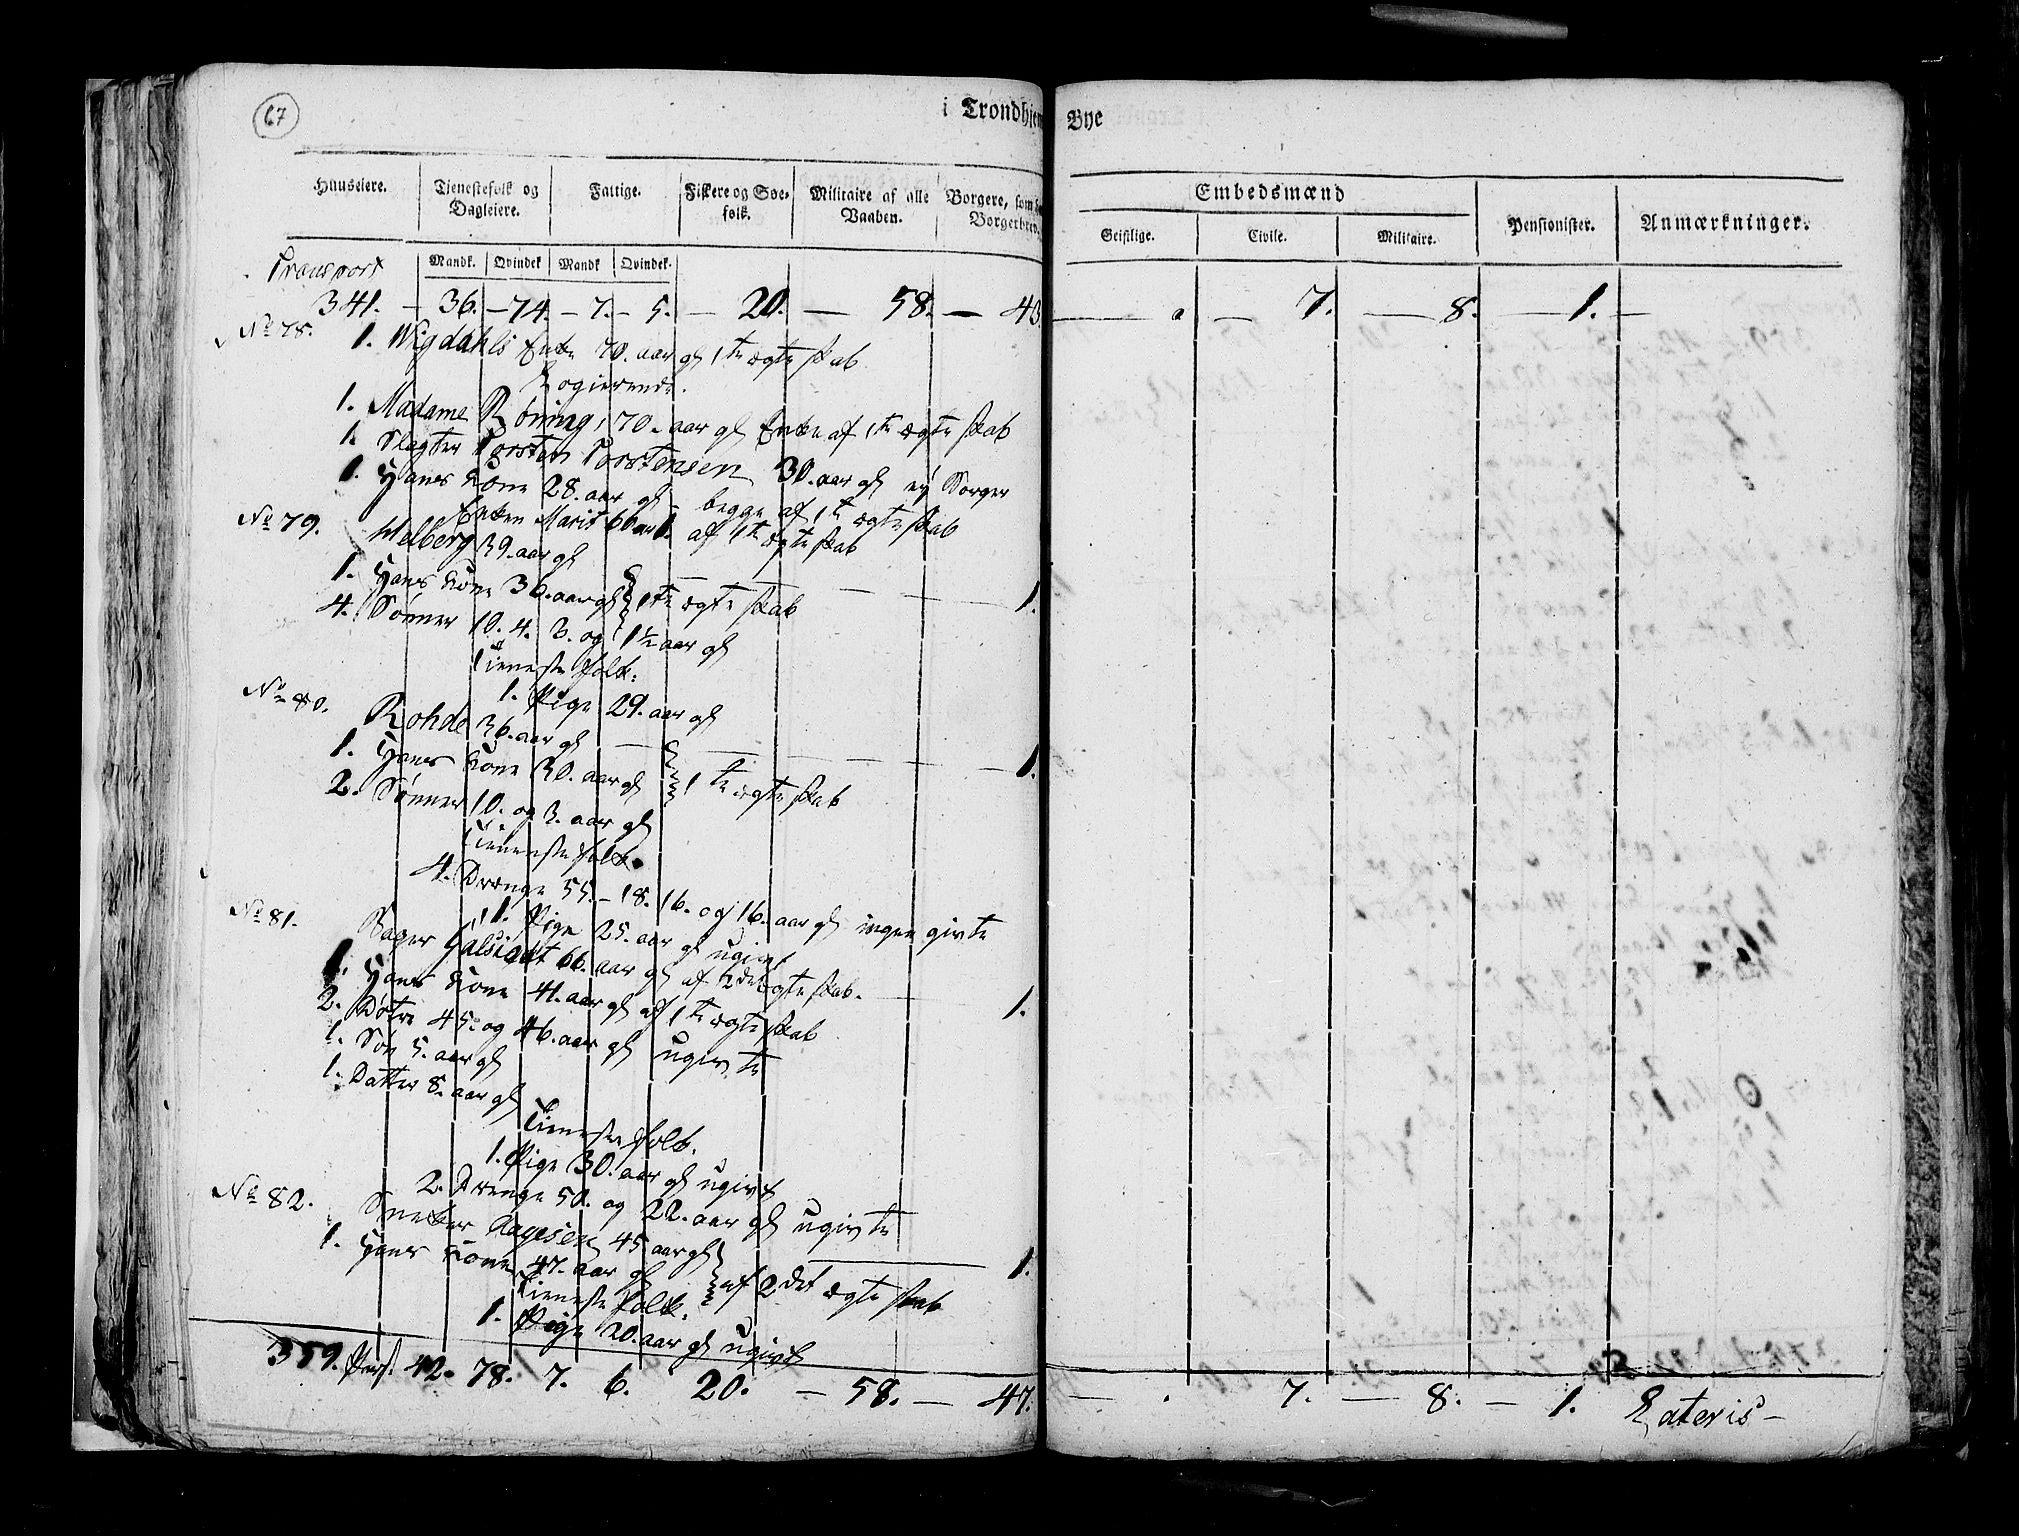 67
i Trondhjem Bye
Huuseiere. Tjenestefolk og Dagleiere. Fattige. Fiskere og Søefolk. Militaire af alle Vaaben. Borgere, som Borgerbrev.
Embedsmænd
Geistlige. Civile. Militaire. Pensionister. Anmærkninger.
Mandk. Qvindek Mandk Qvindek.
Transport
341. — 36. — 74. — 7. — 5. — 20. — 58. — 43. — 7. — 8. — 1. —
No 78. 1. Wigdahls Enke 70. aar gl 1te ægteskab
Logierende.
1. Madame Röning, 70. aar gl Enke af 1te ægteskab
1. Slagter Torsten Torstensen 30. aar gl ej Borger
1. Hans Kone 28. aar gl begge af 1te ægteskab
Enken Marit 66 aar 1. af 1te ægteskab
No 79. Melberg 39. aar gl
1. Hans Kone 36. aar gl 1te ægteskab 1.
4. Sönner 10. 4. 3. og 1½ aar gl
Tienestefolk.
1. Pige 29. aar gl
No 80. Rohde 36. aar gl
1. Hans Kone 30. aar gl 1te ægteskab 1.
2. Sönner 10. og 3. aar gl
Tienestefolk.
4. Drenge 55. — 18. 16. og 16. aar gl ingen givte
1. Pige 25. aar gl ugivt
No 81. Bager 66. aar gl af 2det ægteskab.
1. Hans Kone 41. aar gl af 1te ægteskab 1.
2. Døtre 45. og 46. aar gl ugivte
1. Søn 5. aar gl
1. Datter 8. aar gl
Tienestefolk.
1. Pige 30. aar gl ugivt
2. Drenge 50. og 22. aar gl ugivte
No 82. Sneker Aagesen 45 aar gl
1. Hans Kone 47. aar gl af 2det ægteskab 1.
Tienestefolk.
1. Pige 20. aar gl ugivt
359. Pers. 42. 78. 7. 6. 20. — 58. — 47. — 7. — 8. — 1. Lateris —